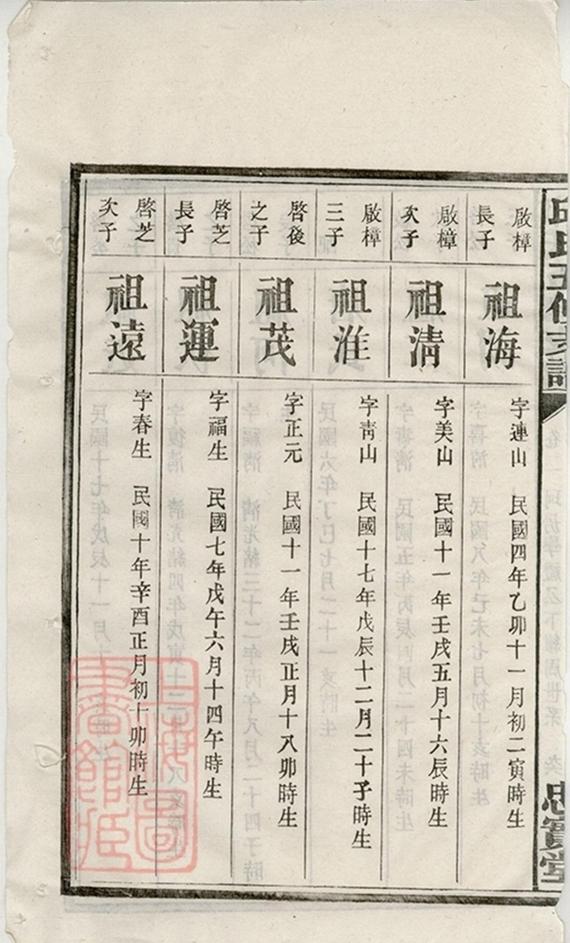 邱氏五修支譜
忠實堂
啟樟長子
祖海
字連山 民國四年乙卯十一月初二寅時生
啟樟次子
祖清
字美山 民國十一年壬戌五月十六辰時生
啟樟三子
祖淮
字靑山 民國十七年戊辰十二月二十子時生
啓後之子
祖茂
字正元 民國十一年壬戌正月十八卯時生
啓芝長子
祖運
字福生 民國七年戊午六月十四午時生
啓芝次子
祖遠
字春生 民國十年辛酉正月初十卯時生